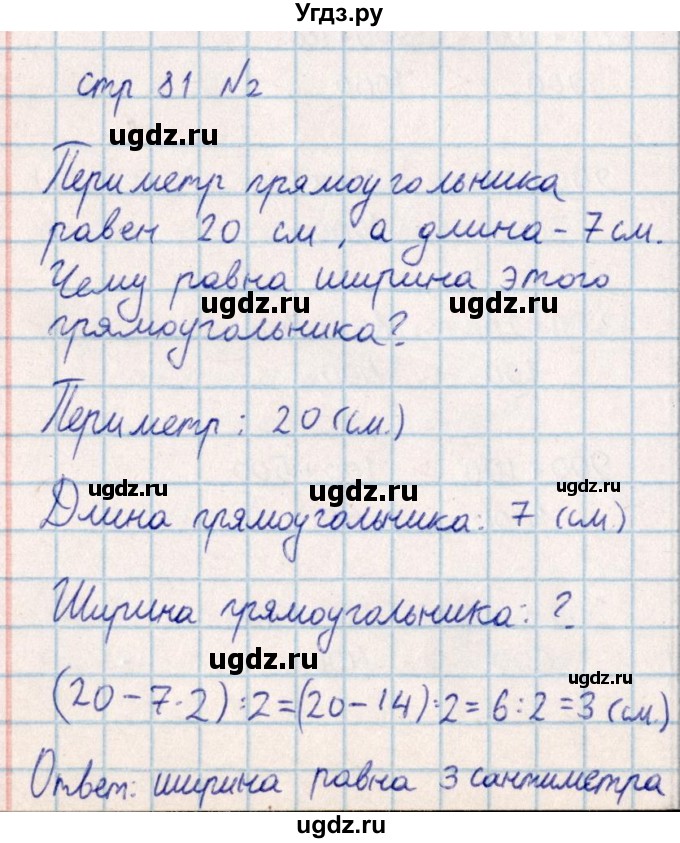 Угдз.ру
стр 81 №2
ugdz.ru
Периметр прямоугольника
равен 20 см, а длина - 7 см.
Чему равна ширина этого
ugdz.ru ugdz.ru
прямоугольника?
Периметр: 20 (см.)
ugdz.ru ugdz.ru ugdz.ru
Длина прямоугольника: 7 (см.)
Ширина прямоугольника: ?
ugdz.ru ugdz.ru
(20-7·2):2=(20-14):2=6:2=3 (см.)
Ответ: ширина равна 3 сантиметра
ugdz.ru